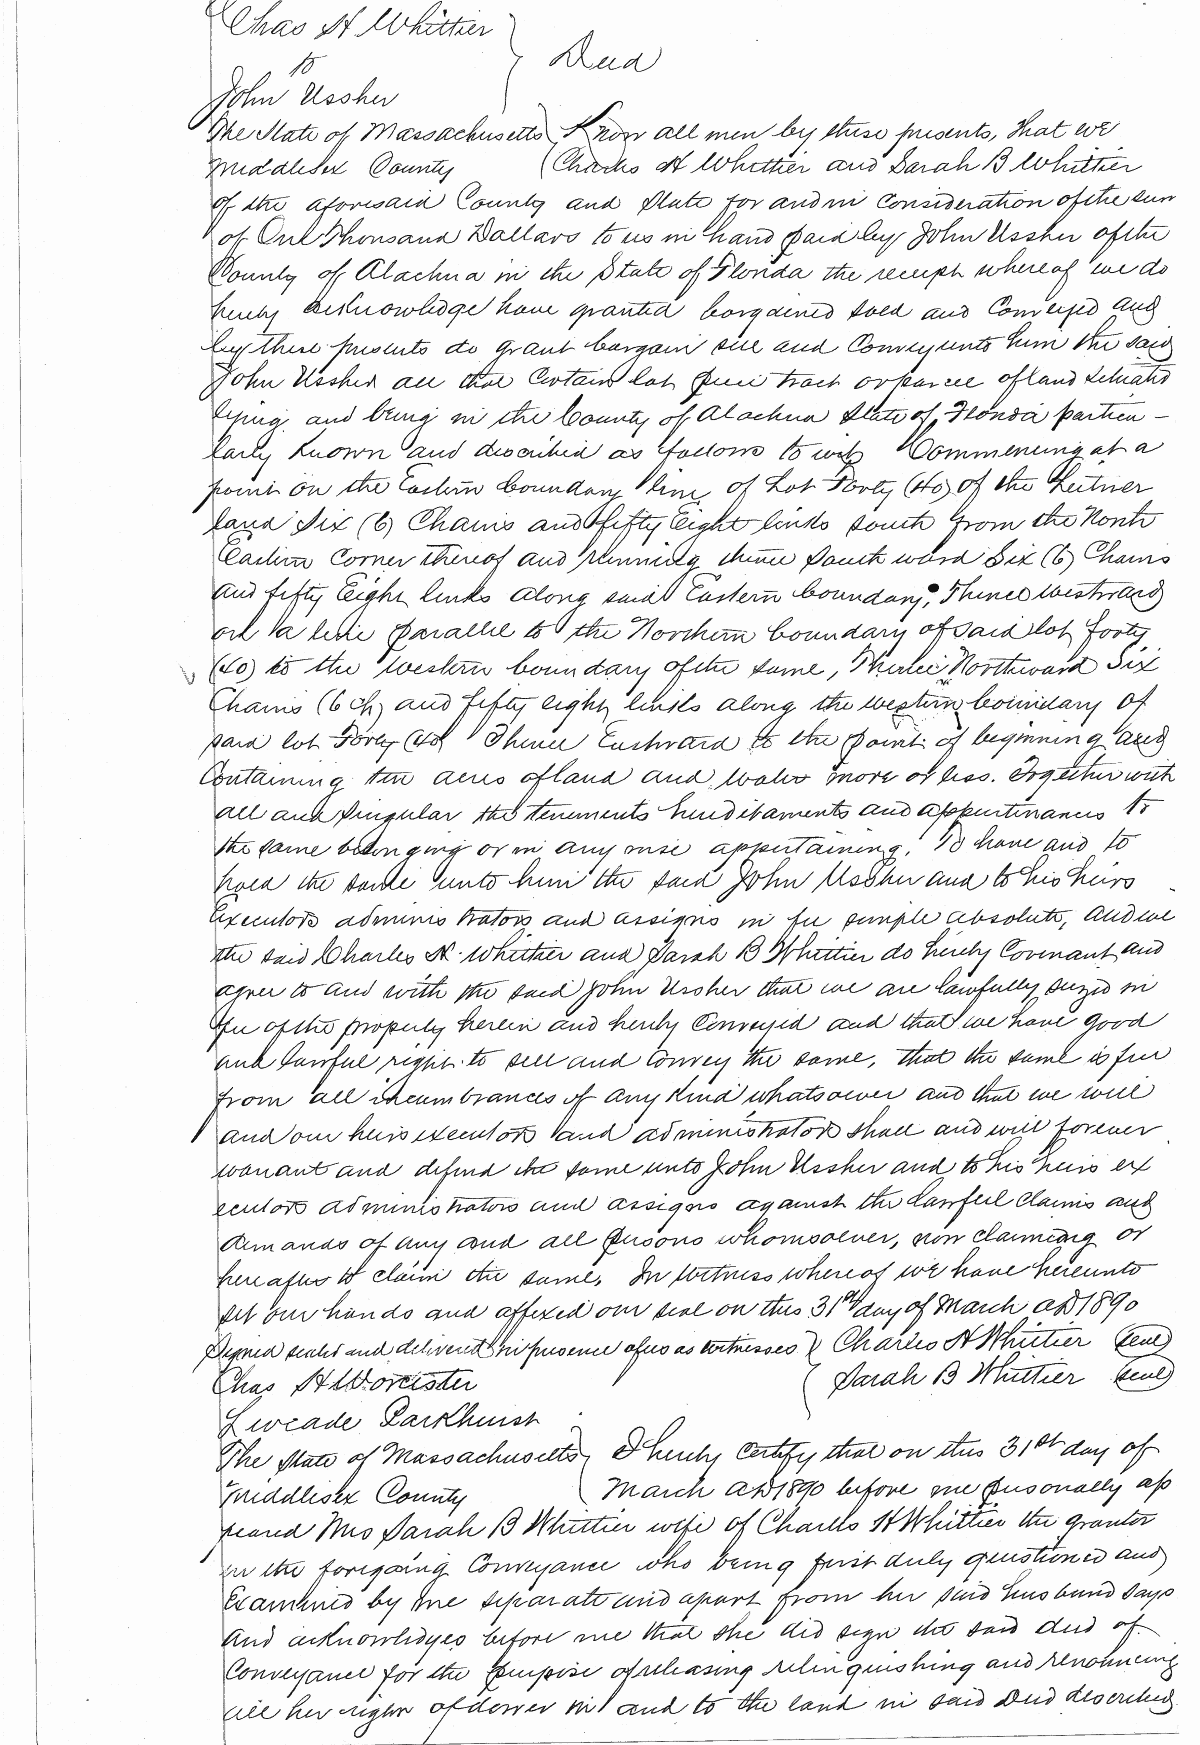 Chas H Whittier
to
Deed
John Ussher
The State of Massachusetts Know all men by these presents, that we
Middlesex County Charles H Whittier and Sarah B Whittier
of the aforesaid County and State for and in consideration of the sum
of One Thousand Dollars to us in hand paid by John Ussher of the
County of Alachua in the State of Florida the receipt whereof we do
hereby acknowledge have granted bargained sold and conveyed and
by these presents do grant bargain sell and convey unto him the said
John Ussher all that certain lot piece tract or parcel of land situated
lying and being in the County of Alachua State of Florida particu-
larly known and described as follows to wit Commencing at a
point on the Eastern boundary line of Lot Forty (40) of the Leitner
land Six (6) Chains and fifty Eight links south from the North
Eastern corner thereof and running thence South ward Six (6) Chains
and fifty Eight links along said Eastern boundary, Thence westward
on a line parallel to the Northern boundary of said lot forty
(40) to the western boundary of the same, Thence Northward Six
Chains (6 ch) and fifty eight links along the western boundary of
said lot Forty (40) Thence Eastward to the point of beginning and
Containing ten acres of land and water more or less. Together with
all and singular the tenements hereditaments and appurtinances to
the same belonging or in any wise appertaining. To have and to
hold the same unto him the said John Ussher and to his heirs
Executors administrators and assigns in fee simple absolute, and we
the said Charles H. Whittier and Sarah B Whittier do hereby Covenant and
agree to and with the said John Ussher that we are lawfully seized in
fee of the property herein and hereby conveyed and that we have good
and lawful right to sell and convey the same, that the same is free
from all incumbrances of any kind whatsoever and that we will
and our heirs executors and administrators shall and will forever
warrant and defend the same unto John Ussher and to his heirs ex
ecutors administrators and assigns against the lawful claims and
demands of any and all persons whomsoever, now claiming or
hereafter to claim the same. In witness whereof we have hereunto
set our hands and affixed our seal on this 31st day of March AD 1890
Signed sealed and delivered in presence of us as witnesses Charles H Whittier (seal)
Chas H Worcester Sarah B Whittier (seal)
Parkhurst
The State of Massachusetts I hereby certify that on this 31st day of
Middlesex County March AD 1890 before me personally ap
peared Mrs Sarah B Whittier wife of Charles H Whittier the grantor
in the foregoing Conveyance who being first duly questioned and
Examined by me separate and apart from her said husband says
And acknowledges before me that she did sign the said deed of
Conveyance for the purpose of releasing relinquishing and renouncing
all her right of dower in and to the land in said Deed described